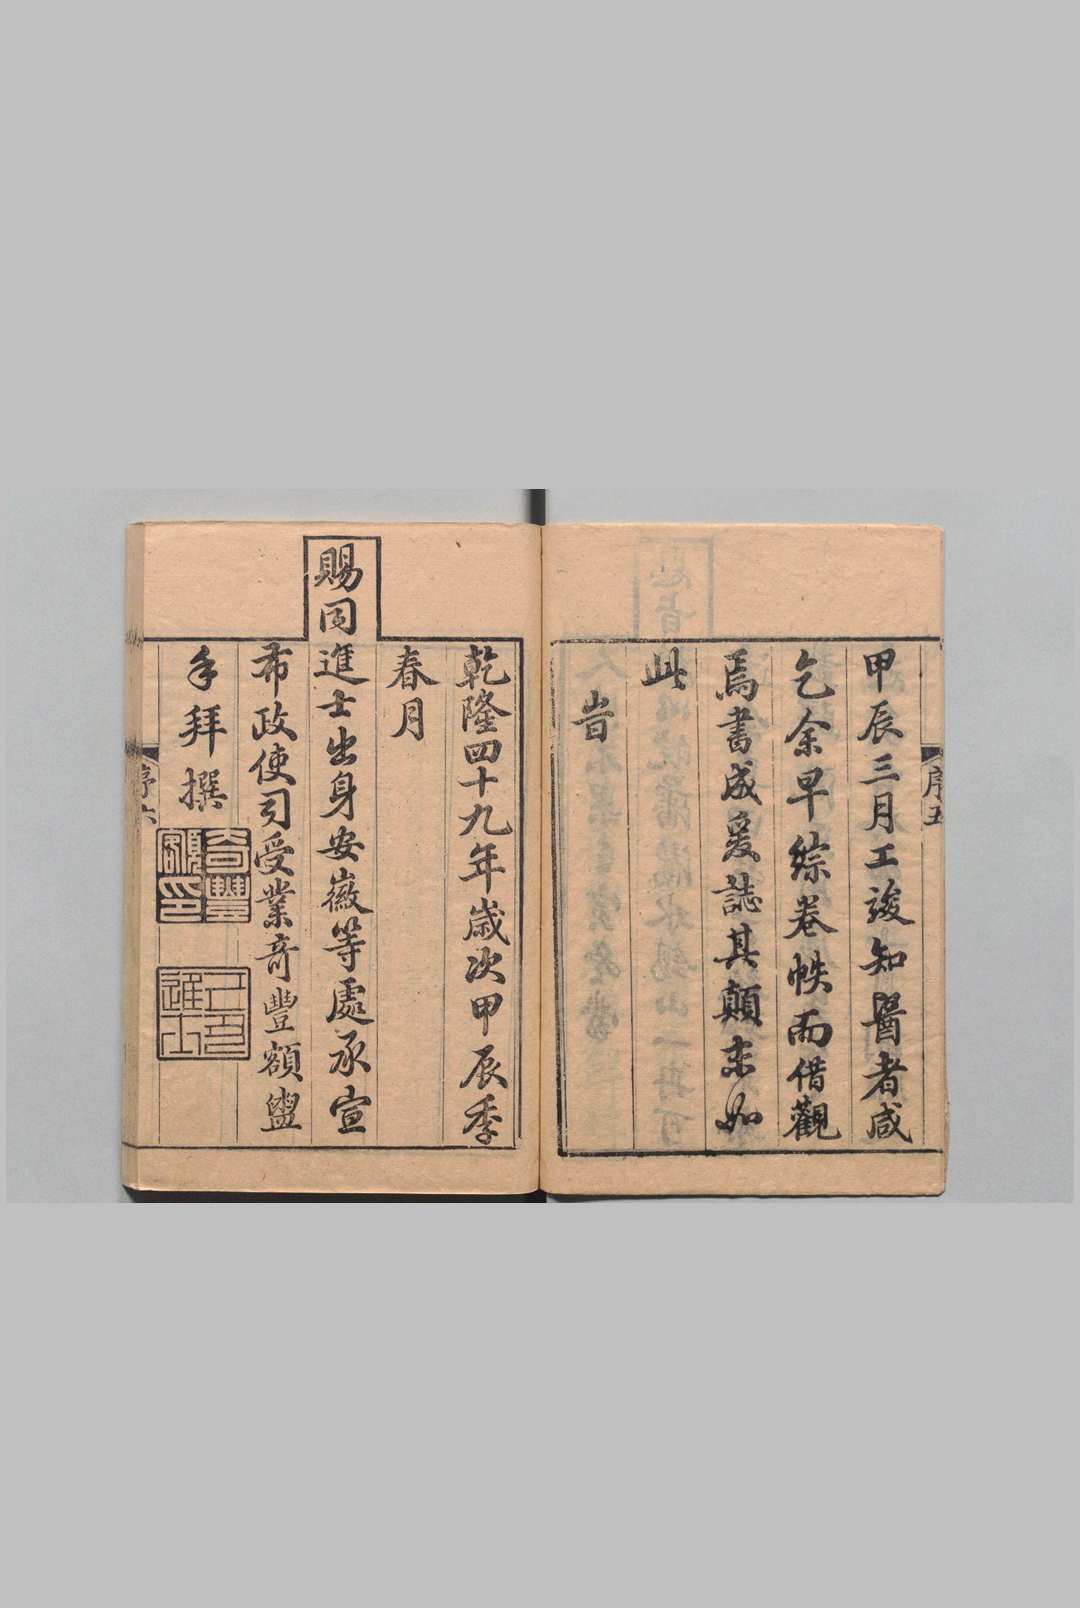 甲辰三月工竣知醫者咸
乞余早綜卷帙而借觀
焉書成爰誌其顛末如
此
旹
序五
乾隆四十九年歲次甲辰季
春月
賜同進士出身安徽等處承宣
布政使司受業奇豐額盥
手拜撰
奇豐額印
進士
序六